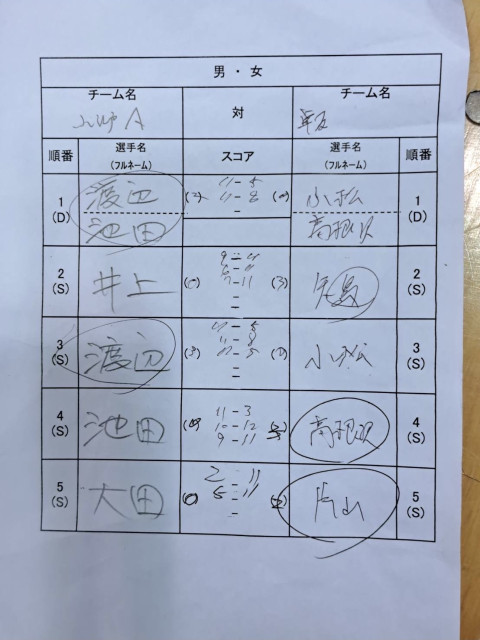 男・女
チーム名 対 チーム名
A
順番 選手名 スコア 選手名 順番
(フルネーム) (フルネーム)
1 渡辺 11 - 5 小松 1
(D) 池田 11 - 8 高根沢 (D)
-
2 井上 9 - 11 矢島 2
(S) - 11 (3) (S)
7 - 11
-
-
3 渡辺 11 - 5 小松 3
(S) (3) 11 - 8 (S)
-
-
4 池田 11 - 3 高根沢 4
(S) 10 - 12 (S)
9 - 11
-
5 大田 2 - 11 片山 5
(S) (0) - 11 (S)
-